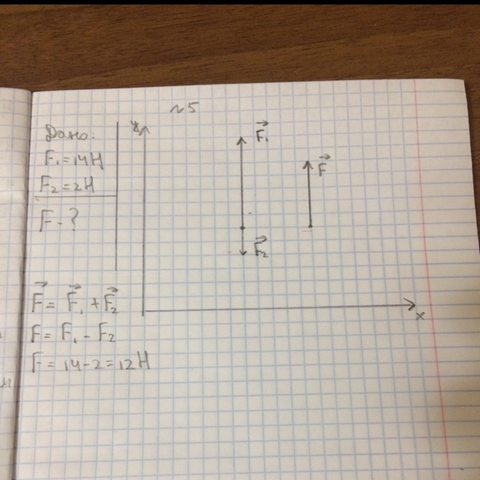 №5
Дано.
F₁=14Н
F₂=2Н
F-?
y
F⃗₁
F⃗
F⃗₂
x
F⃗= F⃗₁+F⃗₂
F= F₁-F₂
F=14-2=12Н